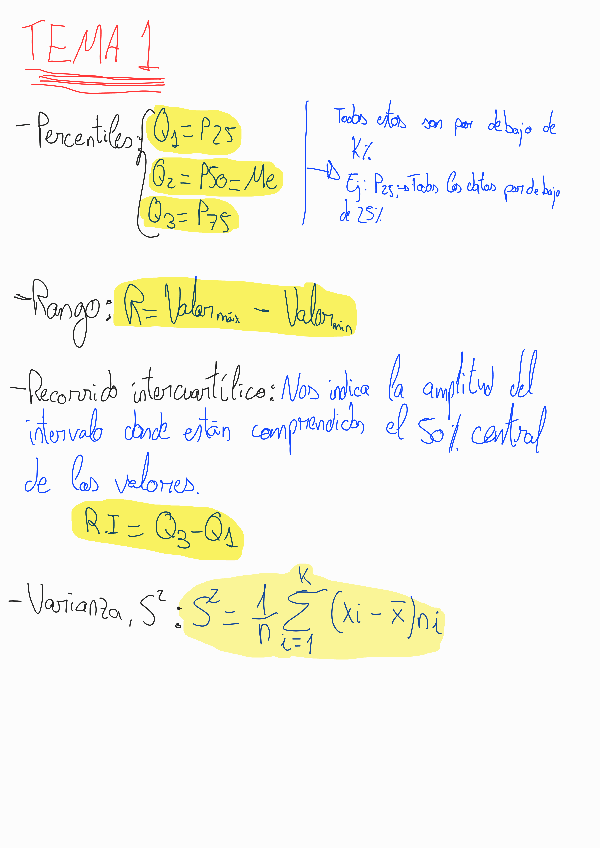 TEMA 1
- Percentiles: { Q₁ = P25
Q₂ = P50 = Me
Q₃ = P75
Todos estos son por debajo de
K%
→ Ej: P25 → Todos los datos por debajo
de 25%
- Rango: R = Valor máx - Valor min
- Recorrido intercuartílico: Nos indica la amplitud del
intervalo donde están comprendidos el 50% central
de los valores.
R.I = Q₃ - Q₁
- Varianza, S²: S² = 1/n ∑ᵢ₌₁ᴷ (xi - x̄) ni